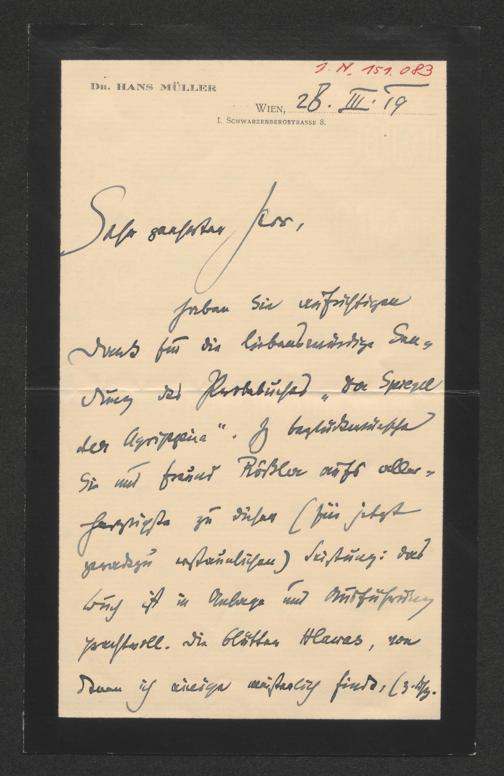 J. N. 151.083
DR. HANS MÜLLER
WIEN, 28. III. 19
I. SCHWARZENBERGSTRASSE 8.
Sehr geehrter Herr,
haben Sie aufrichtigen
Dank für die liebenswürdige Sen-
dung des Probebuches „Der Spiegel
der Agrippina“. Ich beglückwünsche
Sie und Freund Rößler aufs aller-
herzlichste zu dieser (für jetzt
geradezu erstaunlichen) Leistung: das
Buch ist in Anlage und Ausführung
prachtvoll. Die Blätter Hlawas, von
denen ich einige meisterlich finde, (z.